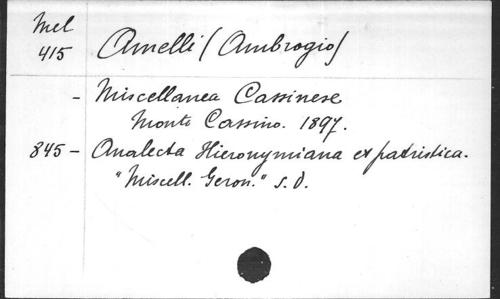 Mel
415
Amelli (Ambrogio)
- Miscellanea Cassinese
Monte Cassino. 1897.
845 - Analecta Hieronymiana et patristica.
"Miscell. Geron." s. d.